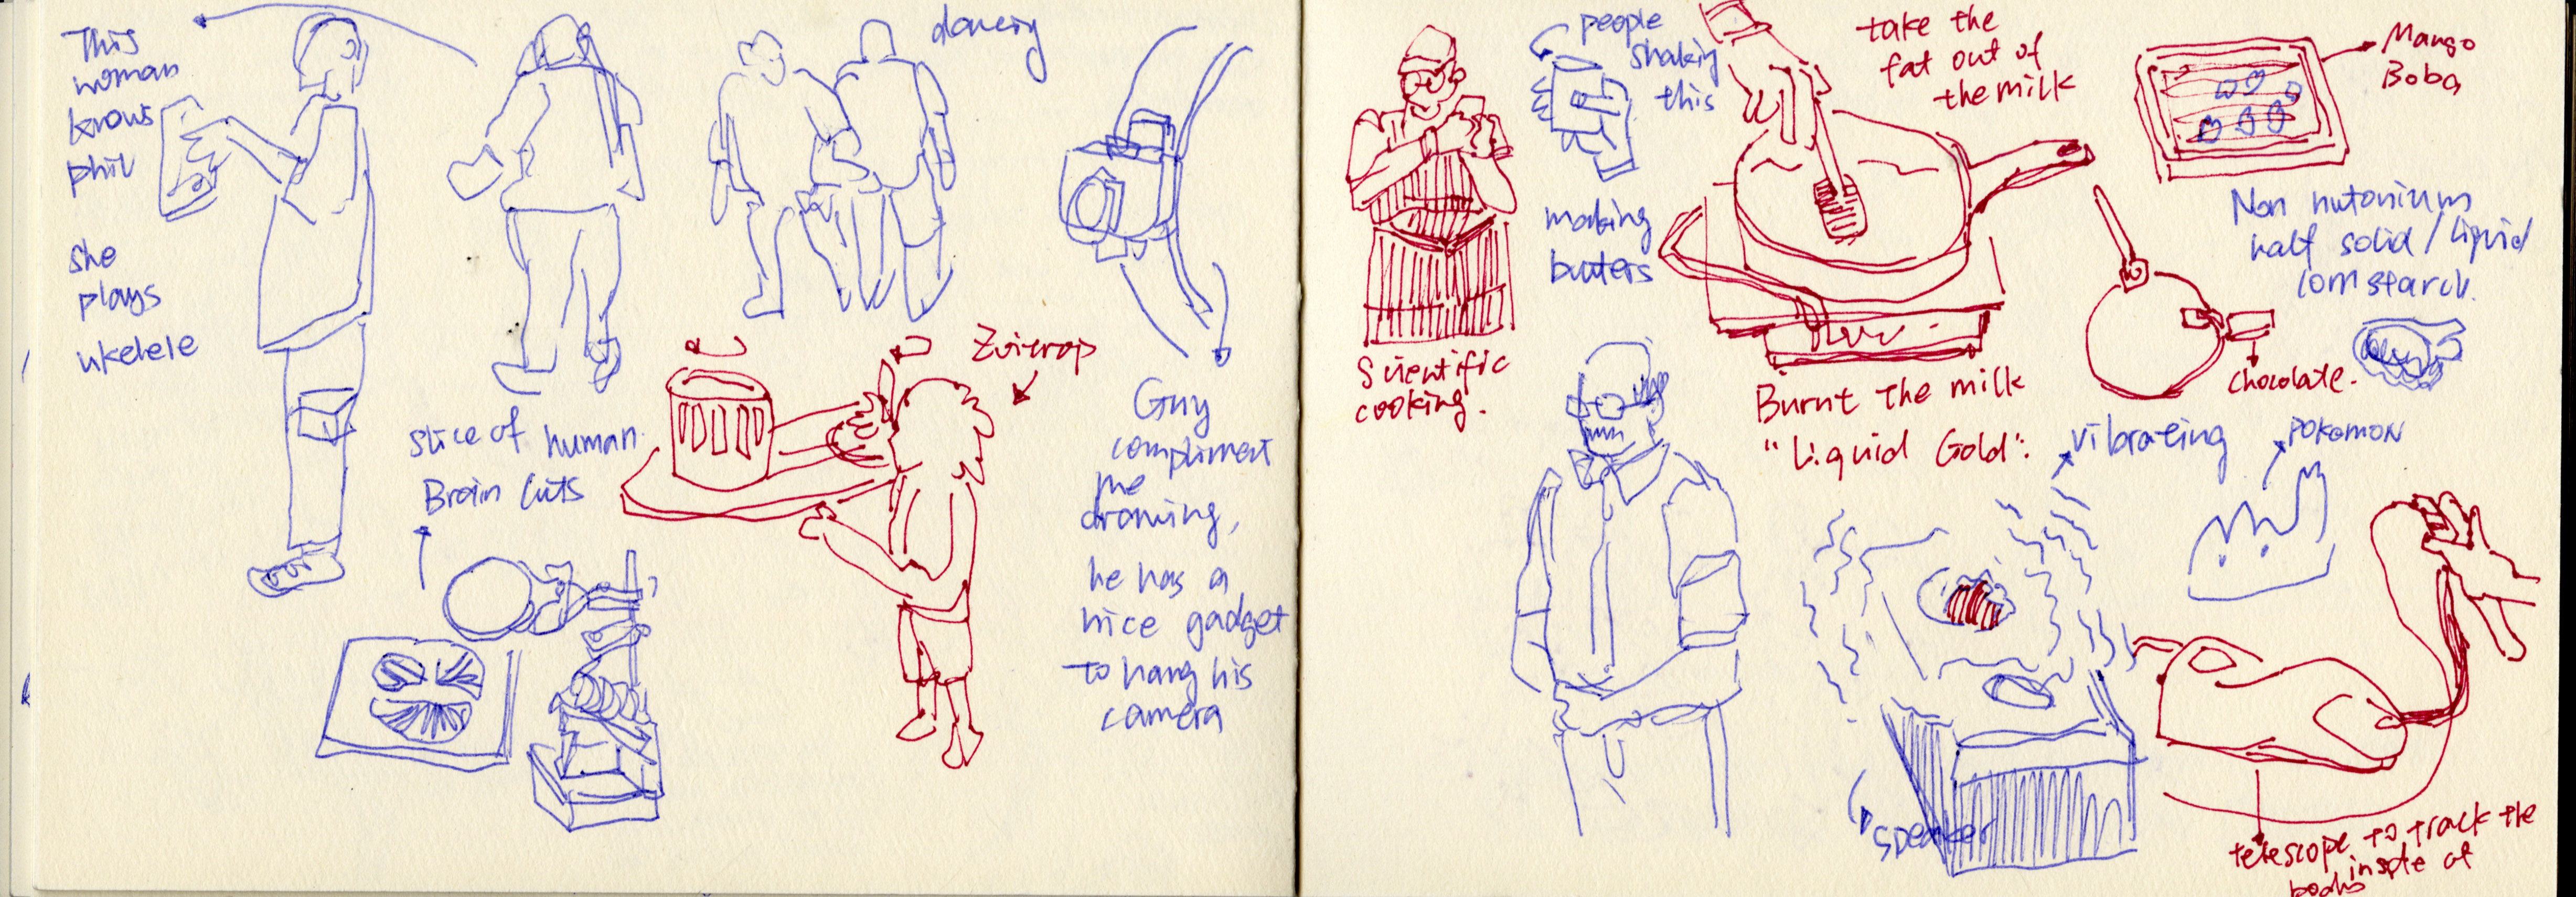 This
woman
knows
phil
she
plays
ukelele
dancing
slice of human
Brain cuts
Guy
compliment
me
drawing,
he has a
nice gadget
to hang his
camera
Scientific
cooking.
people
shaking
this
making
butters
take the
fat out of
the milk
Burnt the milk
"Liquid Gold":
Mango
Boba
Non nutonium
half solid/liquid
cornstarch.
chocolate.
vibrating
pokemon
speaker
telescope to track the
inside of